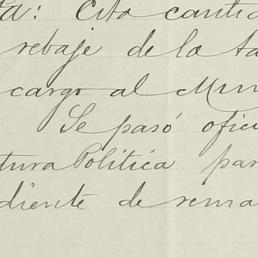 ta: Esta cantid
rebaje de la ta
cargo al Mun
Se pasó ofic
tura Politica par
diente de rema